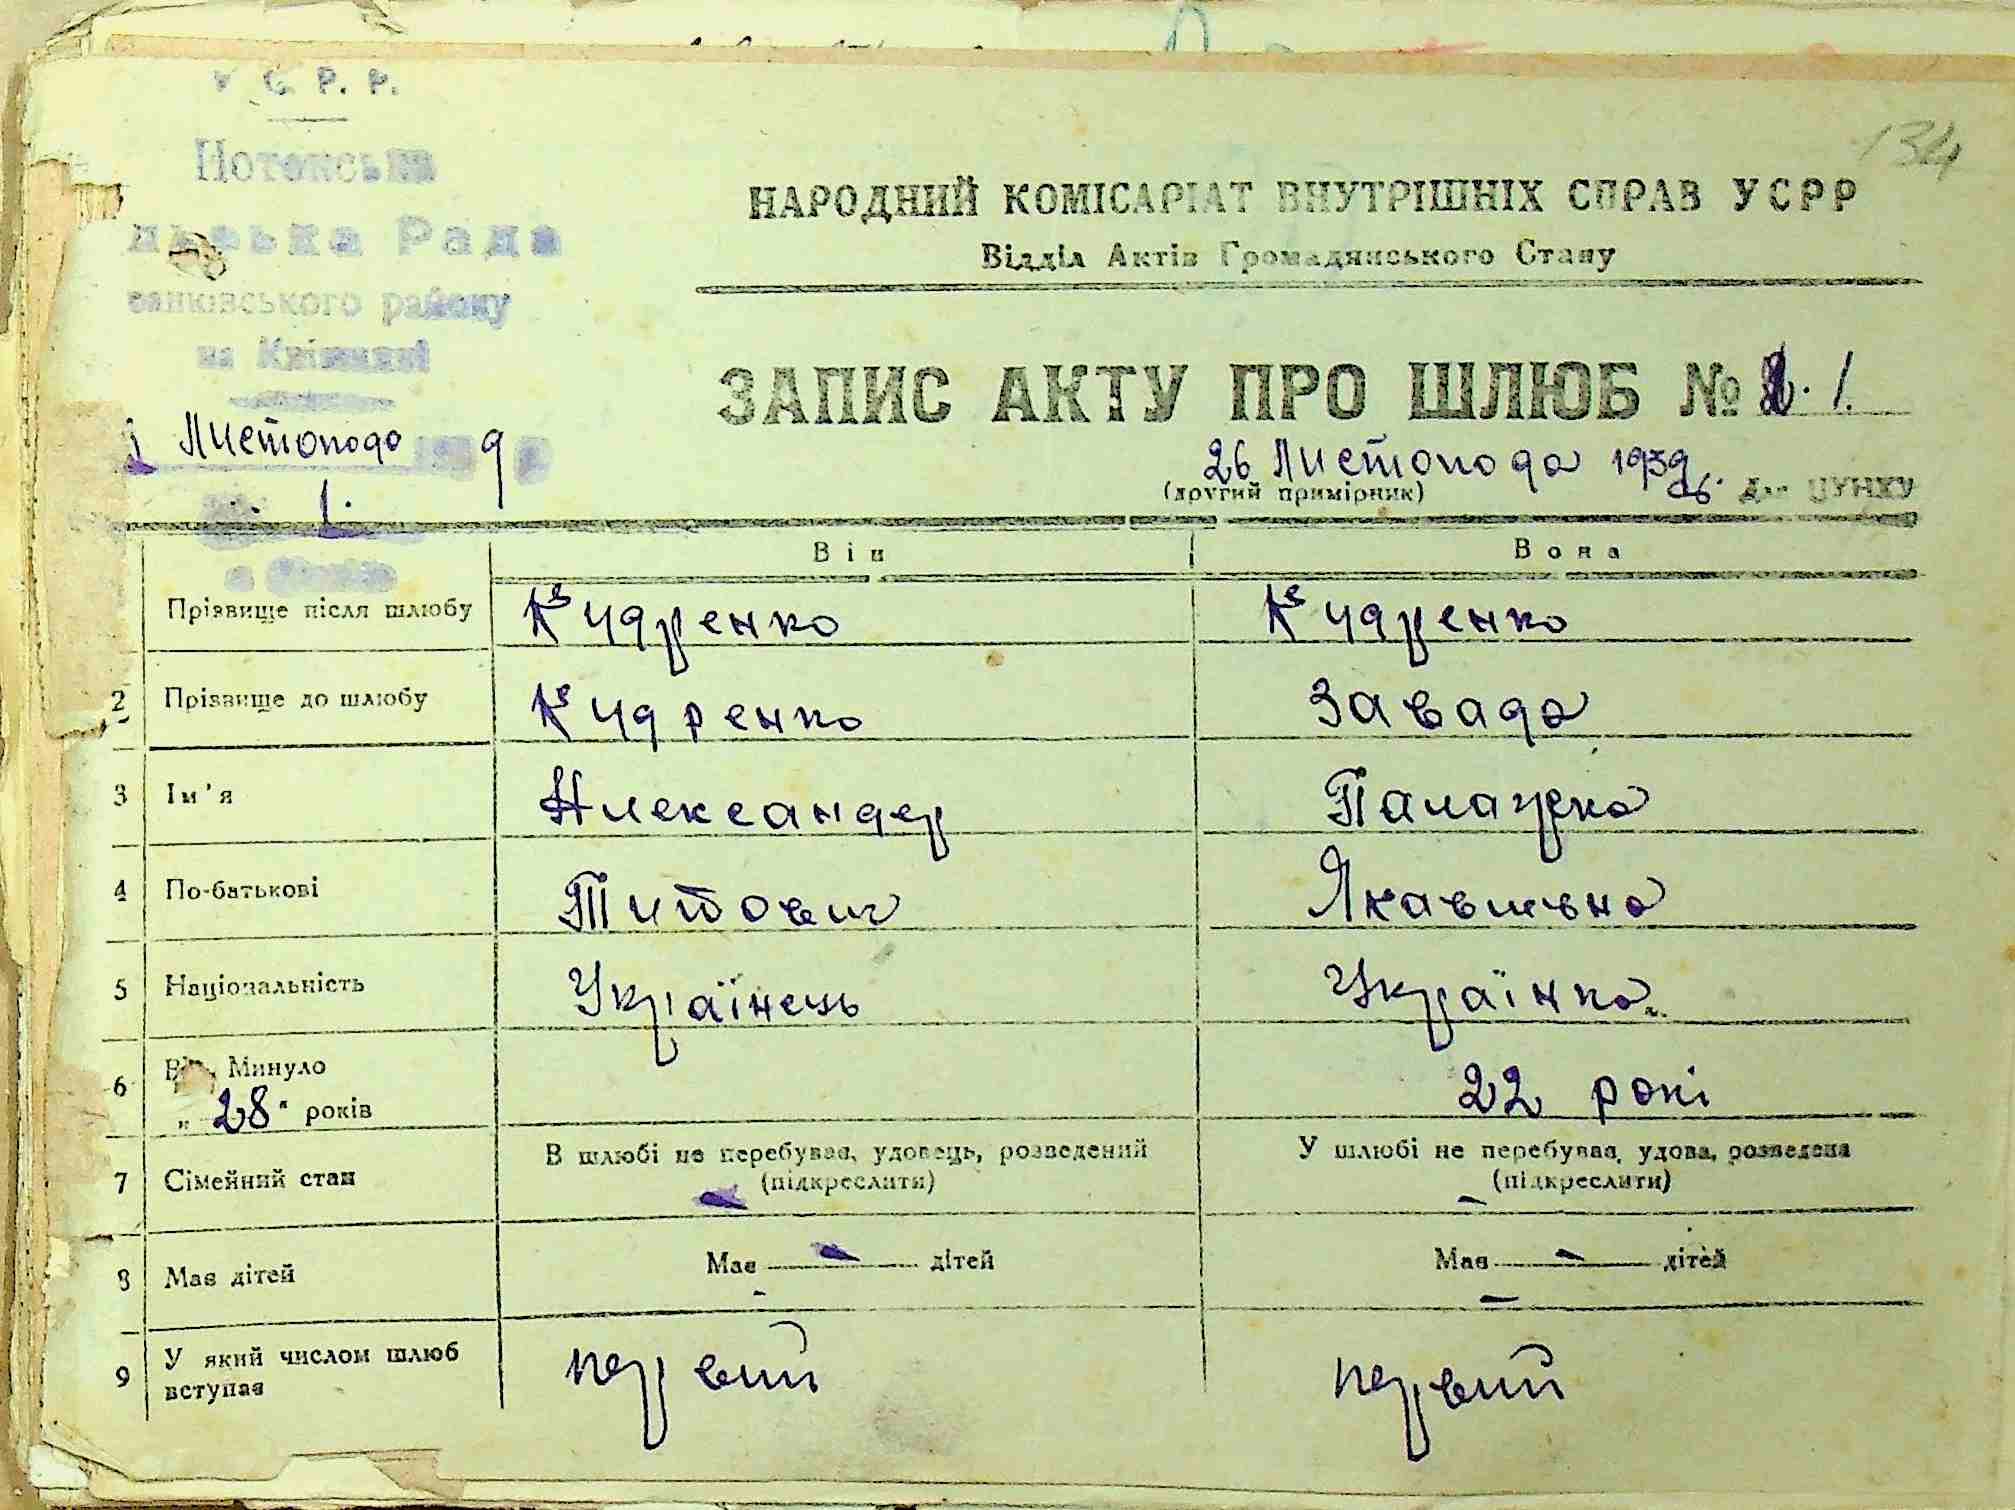 У С. Р. Р.
134
Рада
району
НАРОДНИЙ КОМІСАРІАТ ВНУТРІШНІХ СПРАВ УСРР
Відділ Актів Громадянського Стану
ЗАПИС АКТУ ПРО ШЛЮБ № 1.
Листопада 9
26 Листопада 1939
(другий примірник) Для ЦУНХУ
1.
Він Вона
Прізвище після шлюбу Кучаренко Кучаренко
2 Прізвище до шлюбу Завада
3 Ім'я Александер Палажка
4 По-батькові Титович Якавлевна
5 Національність Українець Українка
6 Вік Минуло
„ 28 " років 22 рокі
7 Сімейний стан В шлюбі не перебував, удовець, розведений У шлюбі не перебувала, удова, розведена
(підкреслити) (підкреслити)
8 Має дітей Має — дітей Має — дітей
9 У який числом шлюб вступає первий первий